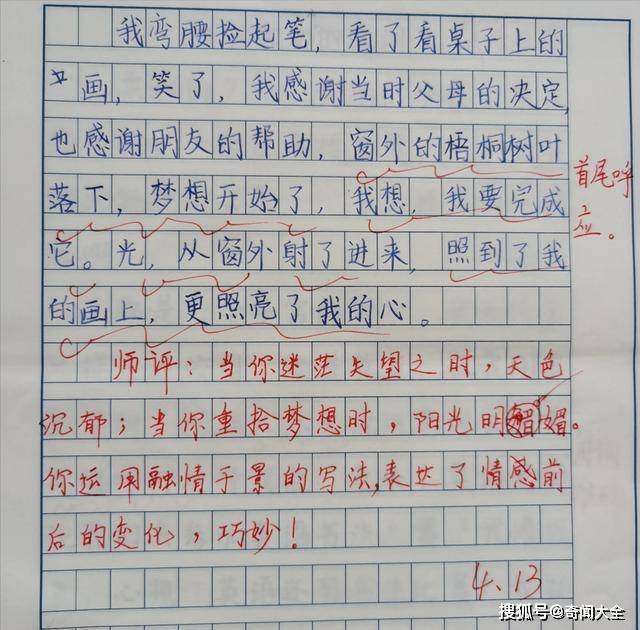 我弯腰捡起笔，看了看桌子上的
画，笑了，我感谢当时父母的决定，
也感谢朋友的帮助，窗外的梧桐树叶
落下，梦想开始了，我想，我要完成
它。光，从窗外射了进来，照到了我
的画上，更照亮了我的心。
首尾呼
应。
师评：当你迷茫失望之时，天色
沉郁；当你重拾梦想时，阳光明媚。
你运用融情于景的写法，表达了情感前
后的变化，巧妙！
4.13
搜狐号@奇闻大全